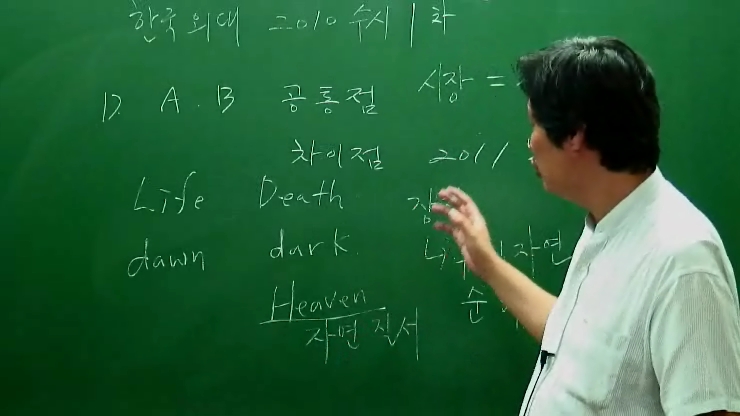 한국외대 2010 수시 1차
D. A. B 공통점 시장 =
차이점 2011
Life Death
dawn dark 자연
Heaven 순
자연질서